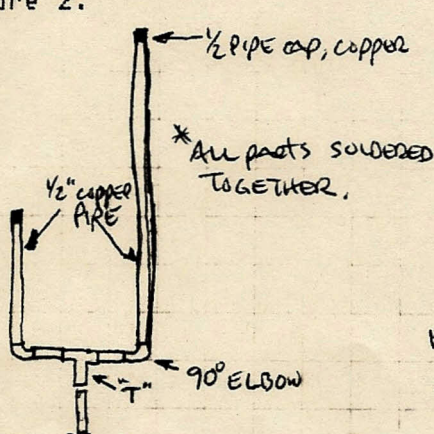 ure 2.
1/2 PIPE CAP, COPPER
*ALL PARTS SOLDERED
TOGETHER.
1/2" COPPER
PIPE
90° ELBOW
"T"